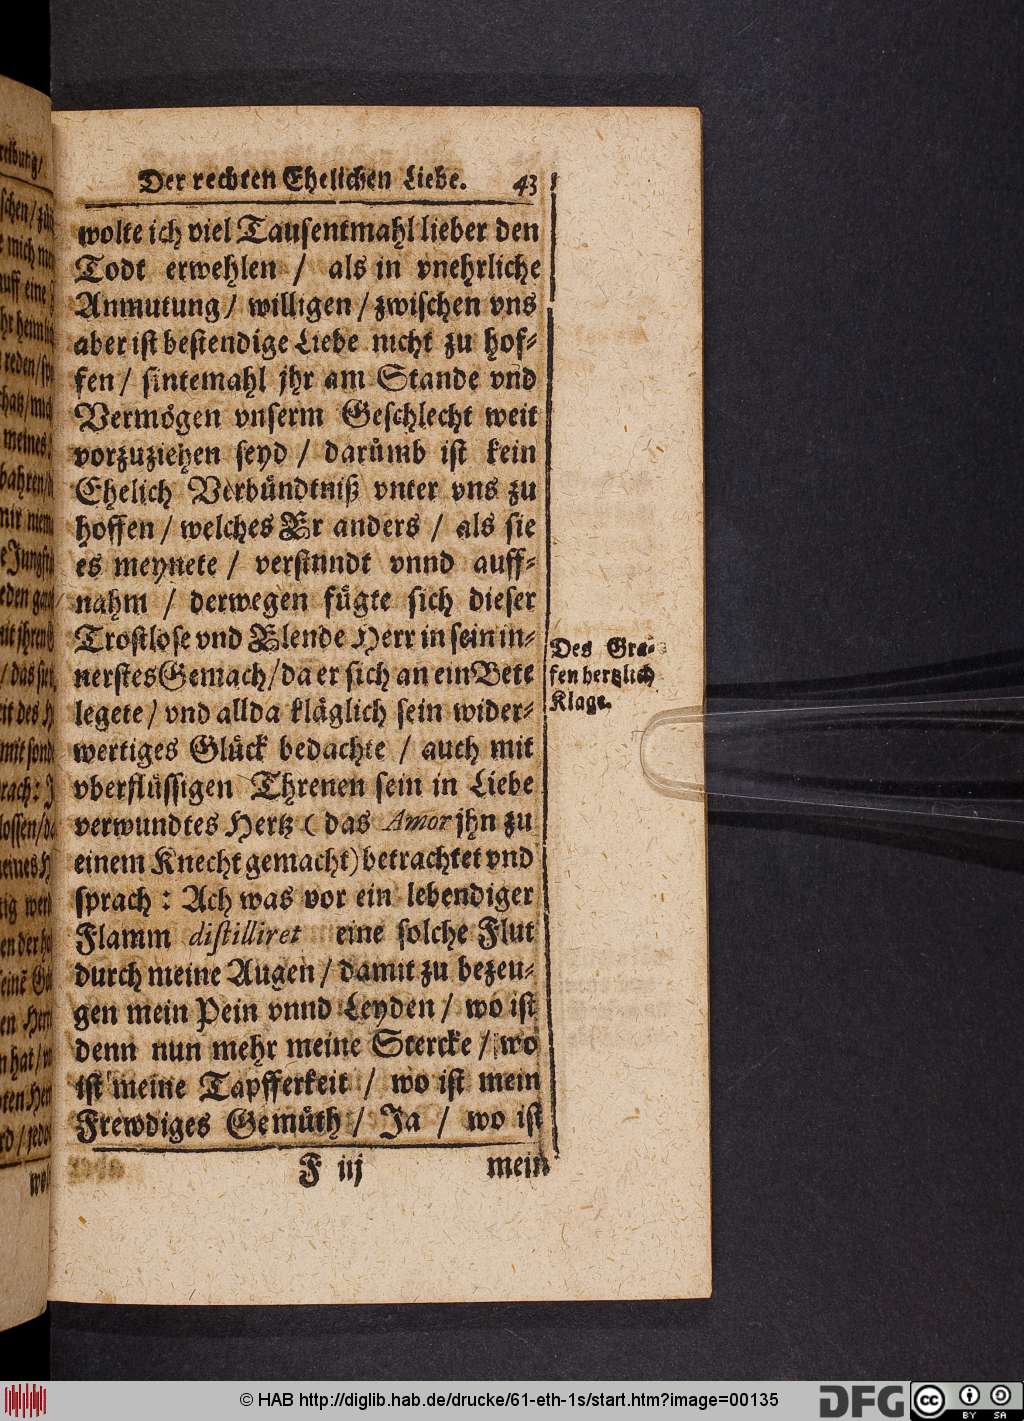 Der rechten Ehelichen Liebe. 43
wolte ich viel Tausentmahl lieber den
Todt erwehlen / als in vnehrliche
Anmutung / willigen / zwischen vns
aber ist bestendige Liebe nicht zu hof-
fen / sintemahl jhr am Stande vnd
Vermögen vnserm Geschlecht weit
vorzuziehen seyd / darümb ist kein
Ehelich Verbündtniß vnter vns zu
hoffen / welches Er anders / als sie
es meynete / verstundt vnnd auff-
nahm / derwegen fügte sich dieser
Trostlose vnd Elende Herr in sein in-
nerstes Gemach / da er sich an ein Bete
legete / vnd allda kläglich sein wider-
wertiges Glück bedachte / auch mit
vberflüssigen Threnen sein in Liebe
verwundtes Hertz ( das Amor jhn zu
einem Knecht gemacht) betrachtet vnd
sprach : Ach was vor ein lebendiger
Flamm distilliret eine solche Flut
durch meine Augen / damit zu bezeu-
gen mein Pein vnnd Leyden / wo ist
denn nun mehr meine Stercke / wo
ist meine Tapfferkeit / wo ist mein
Frewdiges Gemüth / Ja / wo ist
F iij mein
Des Gra-
fen hertzlich
Klage.
© HAB http://diglib.hab.de/drucke/61-eth-1s/start.htm?image=00135
DFG
cc
BY SA